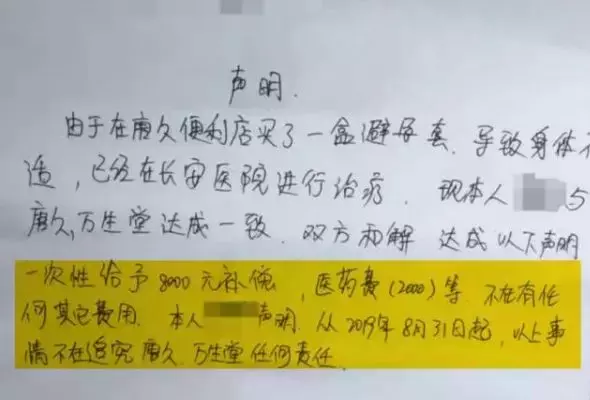 声明.
由于在唐久便利店买了一盒避孕套.导致身体不
适，已经在长安医院进行治疗.现本人 与
唐久,万生堂达成一致.双方和解 达成以下声明
一次性给予8000元补偿，医药费(2000)等.不在有任
何其它费用.本人 声明.从2019年8月31日起，以上事
情不在追究唐久.万生堂任何责任.